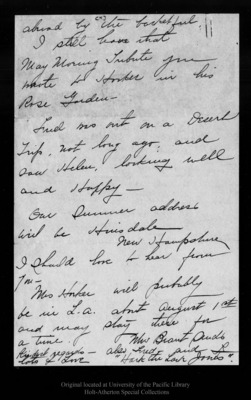 ahead by "The bucketful"
I still have that
May Morning Tribute you
wrote to Hooker in his
Rose Garden—
Fred was out on a Desert
Trip, not long ago, and
saw Helen, looking well
and Happy—
Our Summer address
will be Hinsdale
New Hampshire
I should love to hear from
you—
Mrs Hooker will probably
be in L.A. about August 1st
and may stay there for
a time.
Kindest regards— also Fred and
lots of Love
Jones".
Original located at University of the Pacific Library
Holt-Atherton Special Collections